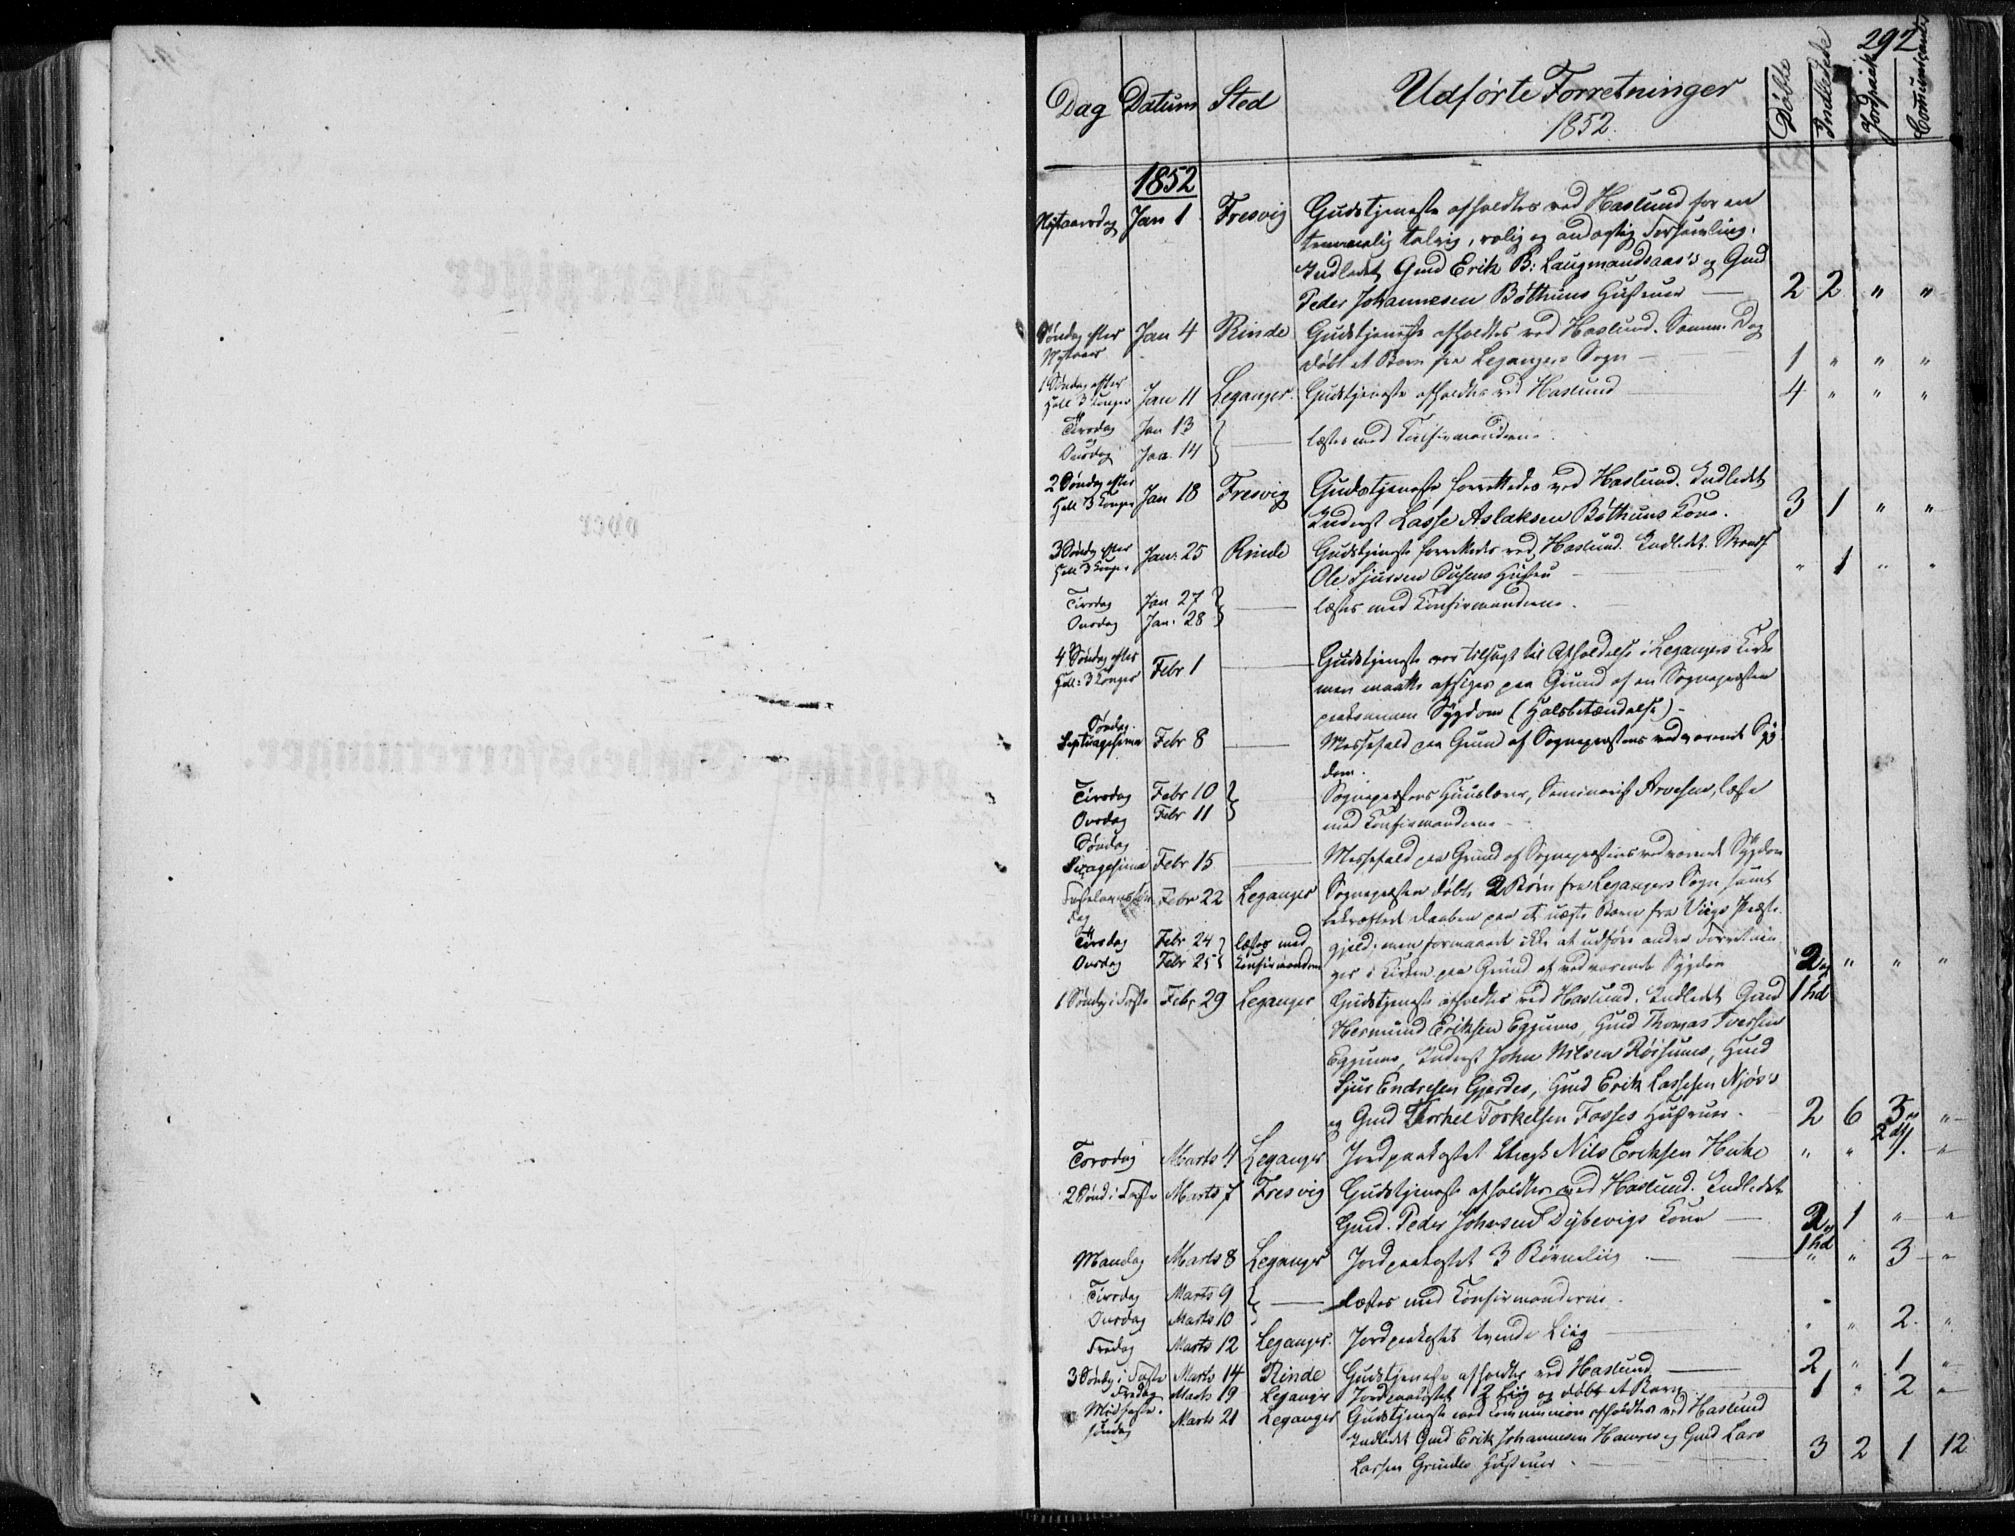 292
Dag Datum Sted Udførte Forretninger Døbte Indledede Jordpaak. Communicanter
1852.
1852
Nytaarsdag Jan 1 Fresvig Gudstjeneste afholdtes ved Haslund for en
temmelig talrig, rolig og andægtig Forsamling.
Indledet Gmd Erik B: Laugmandsaas's og Gmd
Peder Johannesen Bøthuns Hustruer — 2 2 " "
Søndag efter Jan 4 Rinde Gudstjeneste afholdtes ved Haslund. Samme Dag
Nytaar døbt et Barn fra Leganger Sogn — 1 " " "
1 Søndag efter
Hell 3 Konger Jan 11 Leganger. Gudstjeneste afholdtes ved Haslund 4 " " "
Tirsdag Jan 13
og
Onsdag Jan. 14 — læstes med Konfirmanderne.
2 Søndag efter
Hell 3 Konger Jan 18 Fresvig Gudstjeneste forrettedes ved Haslund. Indledet
Inderst Lasse Aslaksen Bøthuns Kone. 3 1 " "
3 Søndag efter
Hell 3 Konger Jan: 25 Rinde Gudstjeneste forrettedes ved Haslund. Indledet
Ole Sjursen Hustru " 1 " "
Tirsdag Jan 27 — læstes med Konfirmanderne.
Onsdag Jan: 28
4 Søndag efter
Hell: 3 Konger Febr 1 — Gudstjeneste var tilsagt til Afholdelse i Leganger Kirke
men maatte afsiges paa Grund af en Sognepræsten
paakommen Sygdom (Halsbetændelse) -
Søndag
Septuagesima Febr 8 — Messefald paa Grund af Sognepræstens vedvarende Syg
dom.
Tirsdag Febr 10 Sognepræstens Huuslærer, Seminarist Arvesen, læste
Onsdag Febr 11 med Konfirmanderne —
Søndag
Sexagesima Febr 15 — Messefald paa Grund af Sognepræstens vedvarende Sygdom
Fastelavnssøn Febr 22 Leganger Sognepræsten døbte 2 Børn fra Leganger Sogn samt
dag bekræftede Daaben paa et uægte Barn fra Viigs Præste
Tirsdag Febr 24 læstes med gjeld, men formaaede ikke at udføre andre Forretnin
Onsdag Febr 25 Konfirmanderne ger i Kirken paa Grund af vedvarende Sygdom 2 og " " "
1 Søndag i Faste Febr 29 Leganger Gudstjeneste afholdtes ved Haslund. Indledet Gmd 1 hd
Hermund Eriksen Eggums, Hmd Thomas Iversen
Eggums, Inderst John Nilsen Røisums, Hmd
Sjur Endresen Gjerdes, Gmd Erik Lassesen Njøs's
og Gmd Thorkel Torkelsen Fosses Hustruer. 2 6 3 og "
2
Torsdag Marts 4 Leganger Jordpaakastet Nils Eriksen Huke " " 1. "
2 Sønd i Faste Marts 7 Fresvig Gudstjeneste afholdtes ved Haslund. Indledet
Gmd. Peder Johnsen Dybevigs Kone — 2 og 1 " "
1 hd
Mandag Marts 8 Leganger Jordpaakastet 3 Børneliig — " " 3 "
Tirsdag Marts 9 — læstes med Konfirmanderne.
Onsdag Marts 10
Fredag Marts 12 Leganger. Jordpaakastet tvende Liig — " " 2 "
3 Søndag i Faste Marts 14 Rinde Gudstjeneste afholdtes ved Haslund — 2 " 1 "
Fredag Marts 19 Leganger Jordpaakastet 2 Liig og døbt et Barn 1 " 2 "
Midfaste- Marts 21 Leganger Gudstjeneste med Communion afholdtes ved Haslund
søndag
Indledet Gmd Erik Johannesen Hamres og Gmd Lars
Larsen Grindes Hustruer. — 3 2 1 12